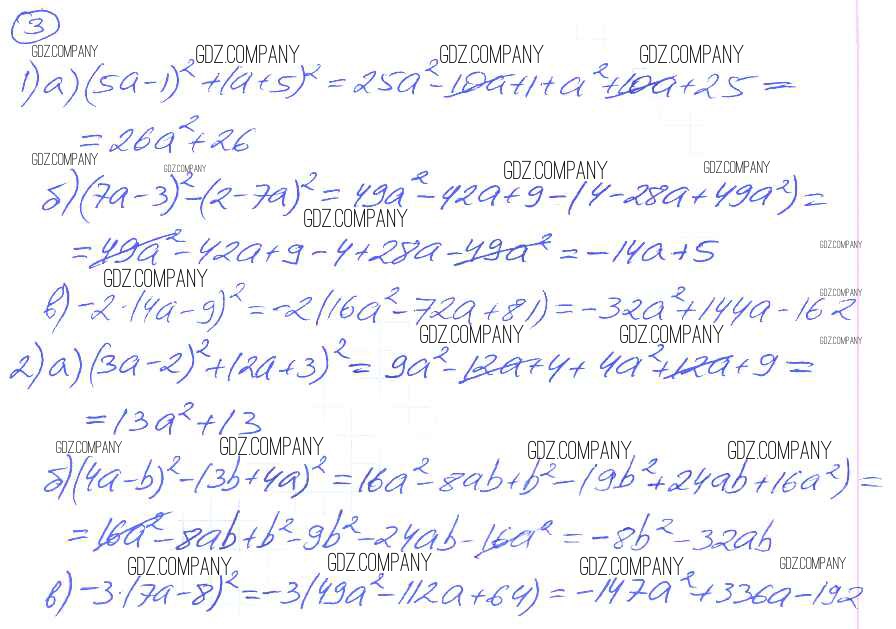 3
GDZ.COMPANY GDZ.COMPANY GDZ.COMPANY GDZ.COMPANY
1) а) (5a-1)² + (a+5)² = 25a² - 10a + 1 + a² + 10a + 25 =
= 26a² + 26
GDZ.COMPANY GDZ.COMPANY GDZ.COMPANY GDZ.COMPANY
б) (7a-3)² - (2-7a)² = 49a² - 42a + 9 - (4 - 28a + 49a²) =
GDZ.COMPANY
= 49a² - 42a + 9 - 4 + 28a - 49a² = -14a + 5
GDZ.COMPANY
GDZ.COMPANY GDZ.COMPANY
в) -2·(4a-9)² = -2(16a² - 72a + 81) = -32a² + 144a - 162
GDZ.COMPANY GDZ.COMPANY GDZ.COMPANY
2) а) (3a-2)² + (2a+3)² = 9a² - 12a + 4 + 4a² + 12a + 9 =
= 13a² + 13
GDZ.COMPANY GDZ.COMPANY GDZ.COMPANY GDZ.COMPANY
б) (4a-b)² - (3b+4a)² = 16a² - 8ab + b² - (9b² + 24ab + 16a²) =
= 16a² - 8ab + b² - 9b² - 24ab - 16a² = -8b² - 32ab
GDZ.COMPANY GDZ.COMPANY GDZ.COMPANY GDZ.COMPANY
в) -3·(7a-8)² = -3(49a² - 112a + 64) = -147a² + 336a - 192